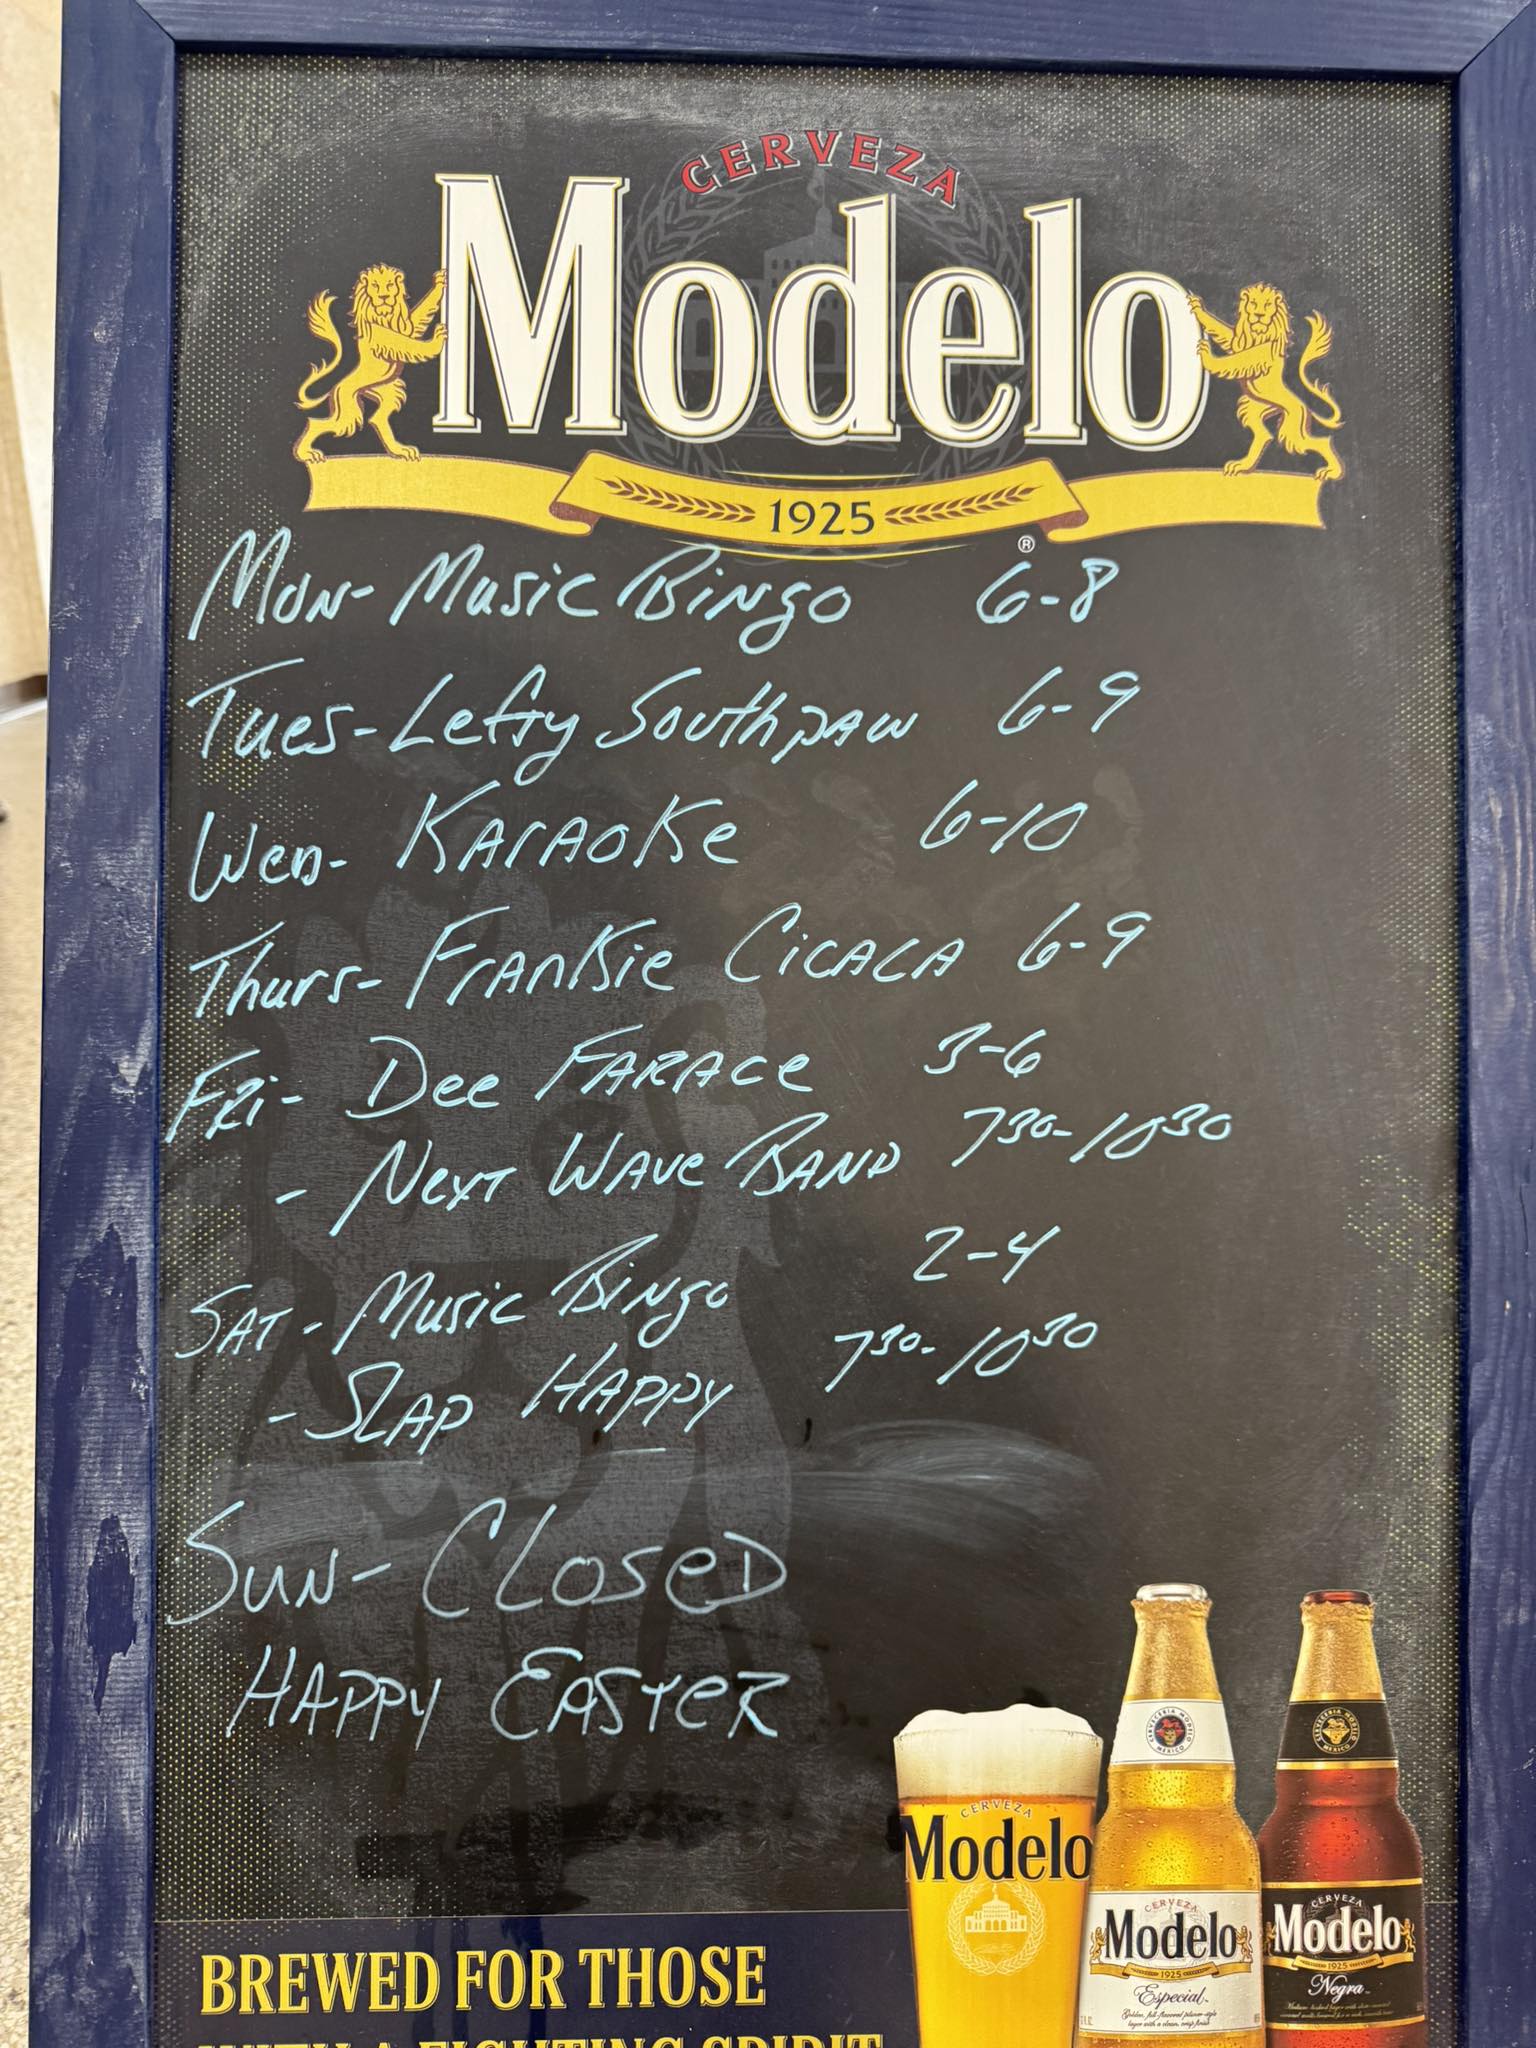 CERVEZA
Modelo
1925
®
Mon- Music Bingo 6-8
Tues- Lefty Southpaw 6-9
Wed- Karaoke 6-10
Thurs- Frankie Cicala 6-9
Fri- Dee Farace 3-6
- Next Wave Band 7³⁰-10³⁰
Sat- Music Bingo 2-4
- Slap Happy 7³⁰-10³⁰
Sun- Closed
Happy Easter
CERVECERIA MODELO
MEXICO
CERVECERIA MODELO
MEXICO
CERVEZA
Modelo
CERVEZA
Modelo
1925
Especial
CERVEZA
Modelo
1925
Negra
BREWED FOR THOSE
WITH A FIGHTING SPIRIT